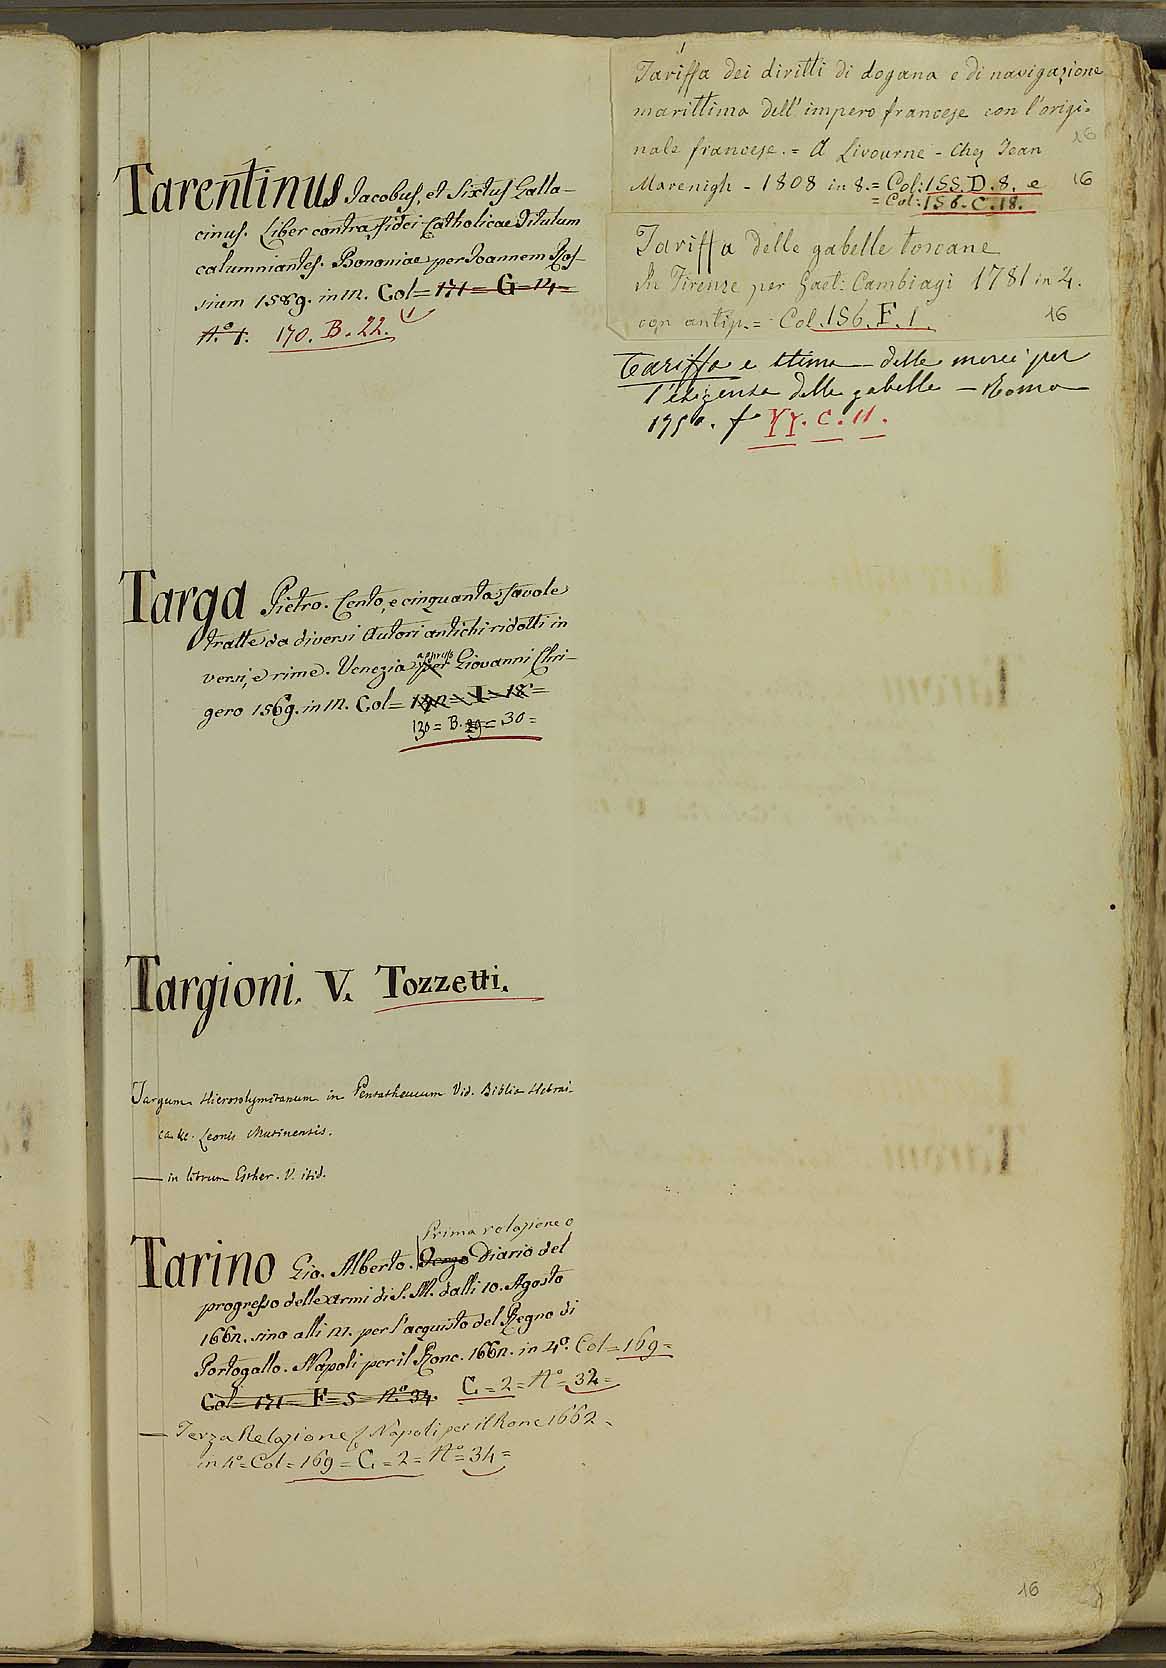 Tarentinus Jacobus, et Sixtus Galla-
cinus. Liber contra fidei Catholicae Titulum
calumniantes. Bononiae per Joannem Ros-
sium 1589. in 12. Col= 171= G= 14=
N.º 1. 170. B. 22.
Targa Pietro. Cento, e cinquanta favole
tratte da diversi Autori antichi ridotti in
versi, e rime. Venezia per appresso Giovanni Chri-
gero 1569. in 12. Col= 132= I= 18=
130= B. 29= 30=
Targioni. V. Tozzetti.
Targum Hierosolymitanum in Pentatheucum Vid. Biblia Hebrai-
ca &c. Leonis Mutinensis.
— in librum Esther. V. ibid.
Prima relazione o
Tarino Gio. Alberto. Diario del
progresso delle armi di S. M. dalli 10. Agosto
1662. sino alli 12. per l'acquisto del Regno di
Portogallo. Napoli per il Ronc. 1662. in 4º. Col= 169=
Col= 171= F= 5= Nº 34. C= 2= Nº= 32=
— Terza Relazione / Napoli per il Ronc 1662=
in 4º= Col= 169= C= 2= Nº= 34=
Tariffa dei diritti di dogana e di navigazione
marittima dell'impero francese con l'origi=
nale francese.= A Livourne - Chez Jean
16
Marenigh - 1808 in 8.= Col: 155. D. 8. e 16
= Col: 156. C. 18.
Tariffa delle gabelle toscane
In Firenze per Gaet: Cambiagi 1781 in 4.
con antip.= Col. 156. F. 1. 16
Tariffa e stima delle merci per
l'esigenza delle gabelle — Roma
1750. f YY. C. 11.
16